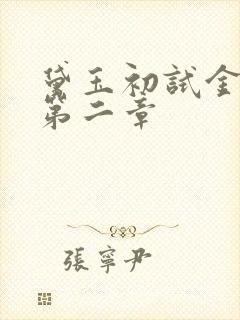 黛玉初試金
第二章
張寧尹